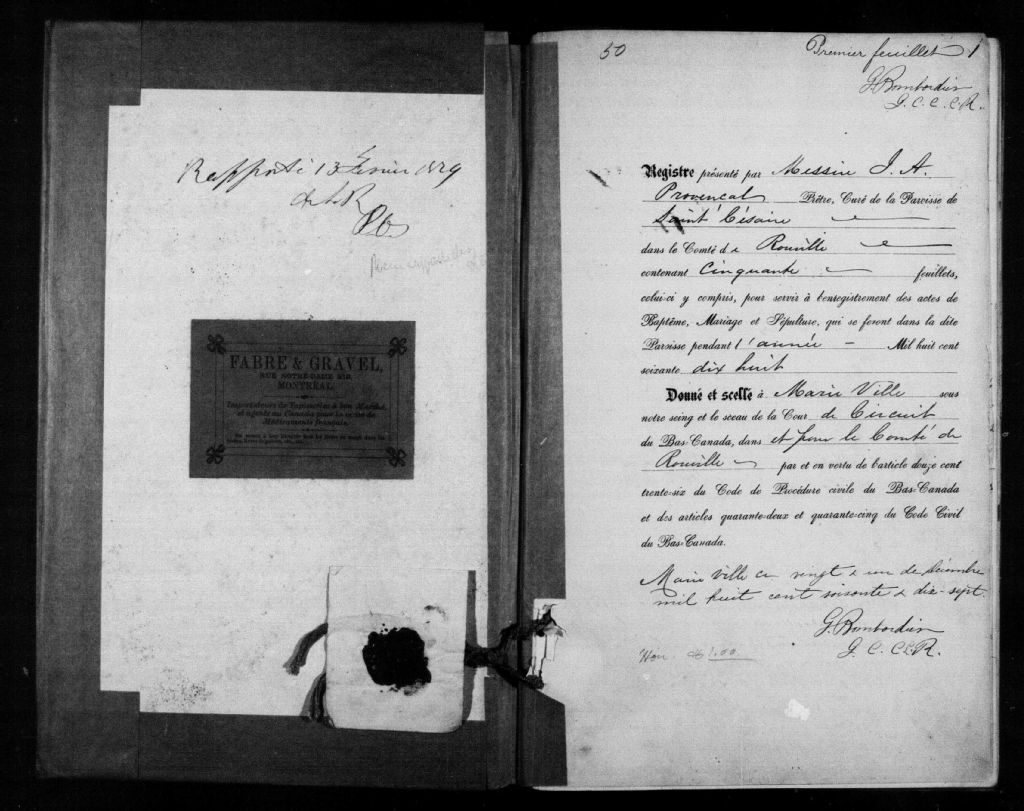 Rapporté 13 février 1879
FABRE & GRAVEL,
RUE NOTRE-DAME 219
MONTRÉAL
Importateurs de Tapisseries à bon Marché,
et agents au Canada pour la vente de
Médicaments français.
50
Premier feuillet 1
G. Bombardier
G. C. C. C. R.
Registre présenté par Messire J. A.
Provençal Prêtre, Curé de la Paroisse de
Saint Césaire
dans le Comté de Rouville
contenant Cinquante feuillets,
celui-ci y compris, pour servir à l'enregistrement des actes de
Baptême, Mariage et Sépulture, qui se feront dans la dite
Paroisse pendant l'année - Mil huit cent
soixante dix huit
Donné et scellé à Marie Ville sous
notre seing et le sceau de la Cour de Circuit
du Bas-Canada, dans et pour le Comté de
Rouville par et en vertu de l'article douze cent
trente-six du Code de Procédure civile du Bas-Canada
et des articles quarante-deux et quarante-cinq du Code Civil
du Bas-Canada.
Marie Ville ce vingt & un de décembre
mil huit cent soixante & dix-sept.
G. Bombardier
G. C. C. C. R.
Hon. $1.00.